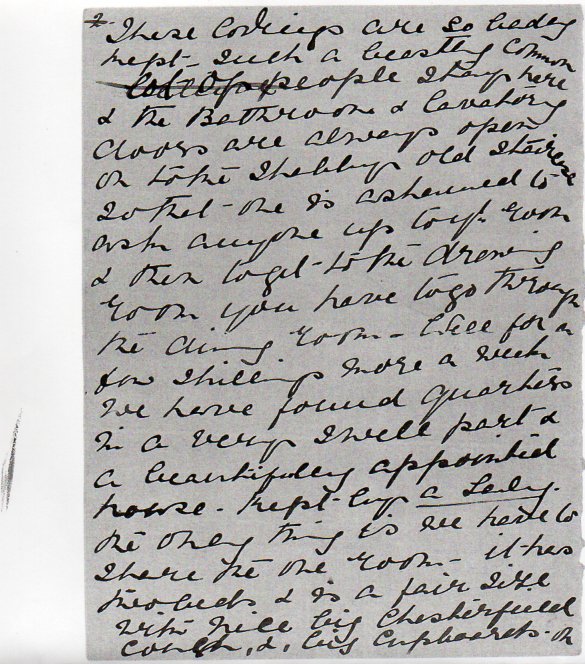 2
These lodgings are so badly
kept - such a beastly common
lot of people stay here
& the Bathroom & lavatory
doors are always open
on to the shabby old staircase
so that one is ashamed to
ask anyone up to yr room
& then to get to the drawing
room you have to go through
the dining room - Well for a
few shillings more a week
we have found quarters
in a very swell part &
a beautifully appointed
house - kept by a Lady.
The only thing is we have to
share the one room - it has
two beds & is a fair size
with nice big Chesterfield
couch, & big cupboards.